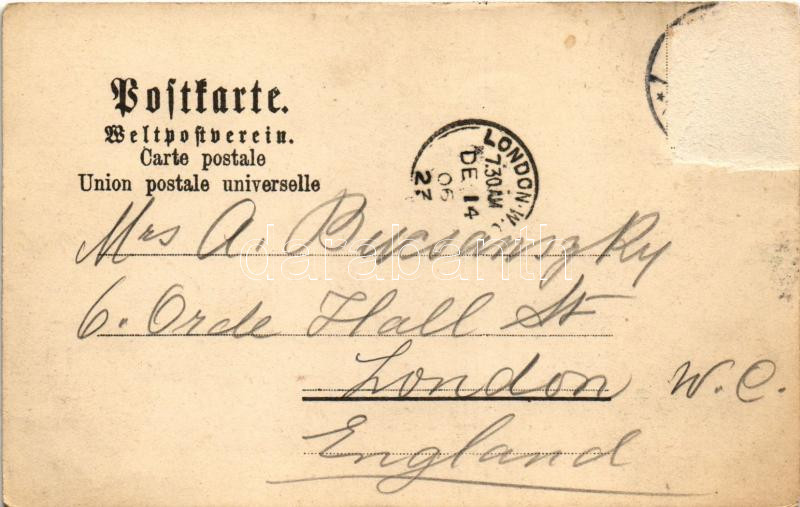 Postkarte.
Weltpostverein.
Carte postale
Union postale universelle
LONDON. W.C
7.30 AM
DE 14
06
27
Mrs A.
6. Orde Hall St
London W.C.
England
darabanth